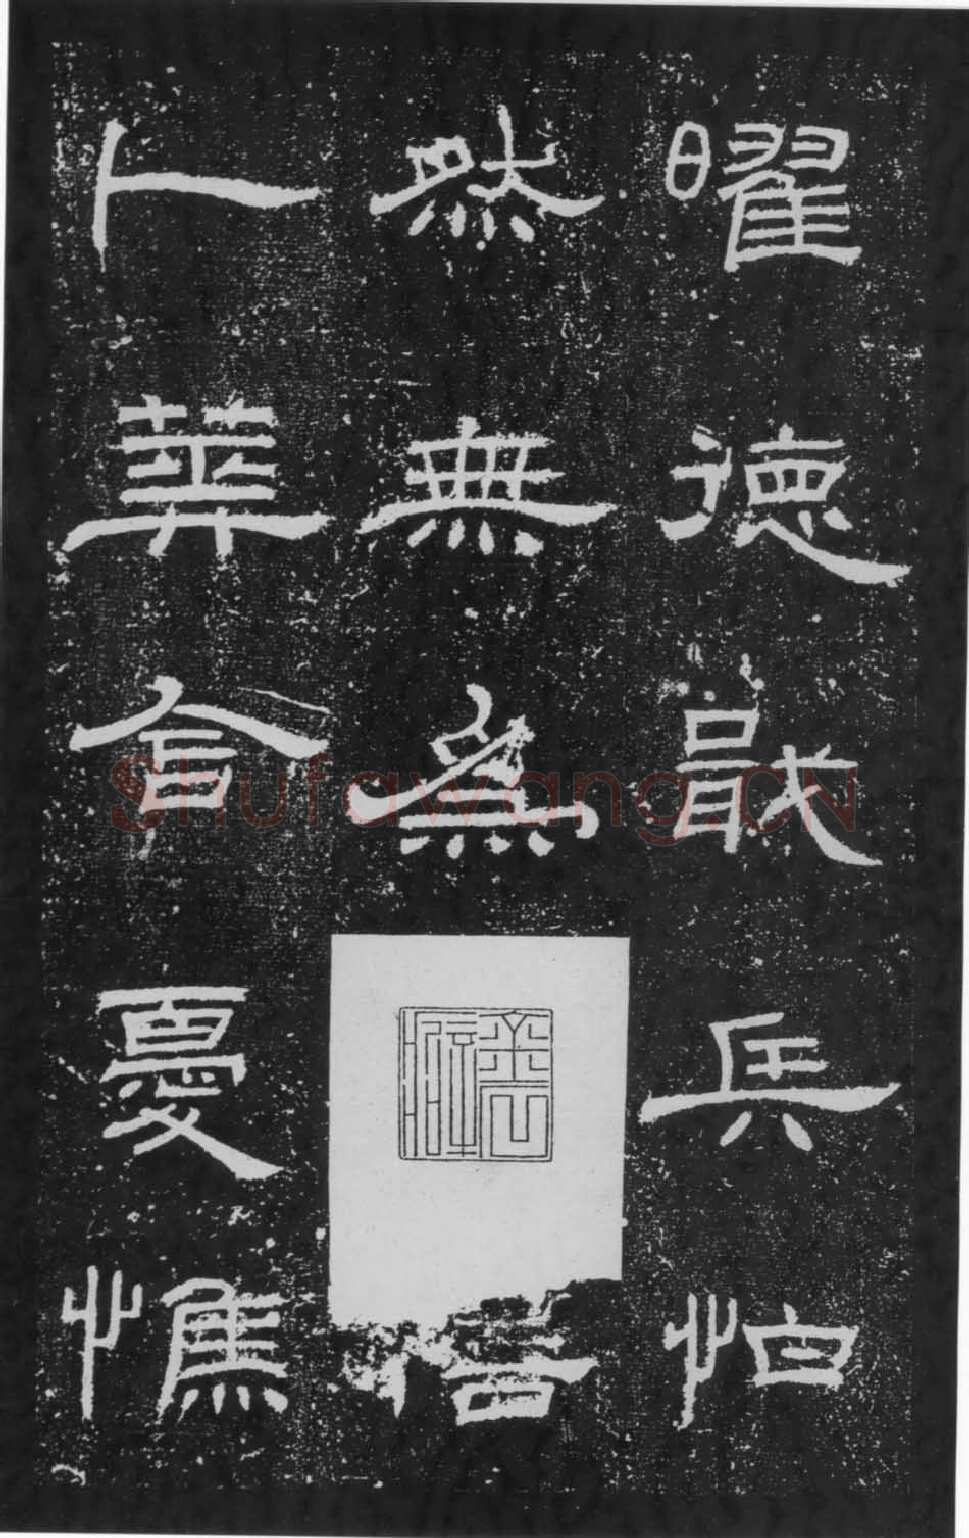 曜德戢兵怕
然無為
卜含憂憔
Shufawang.CN